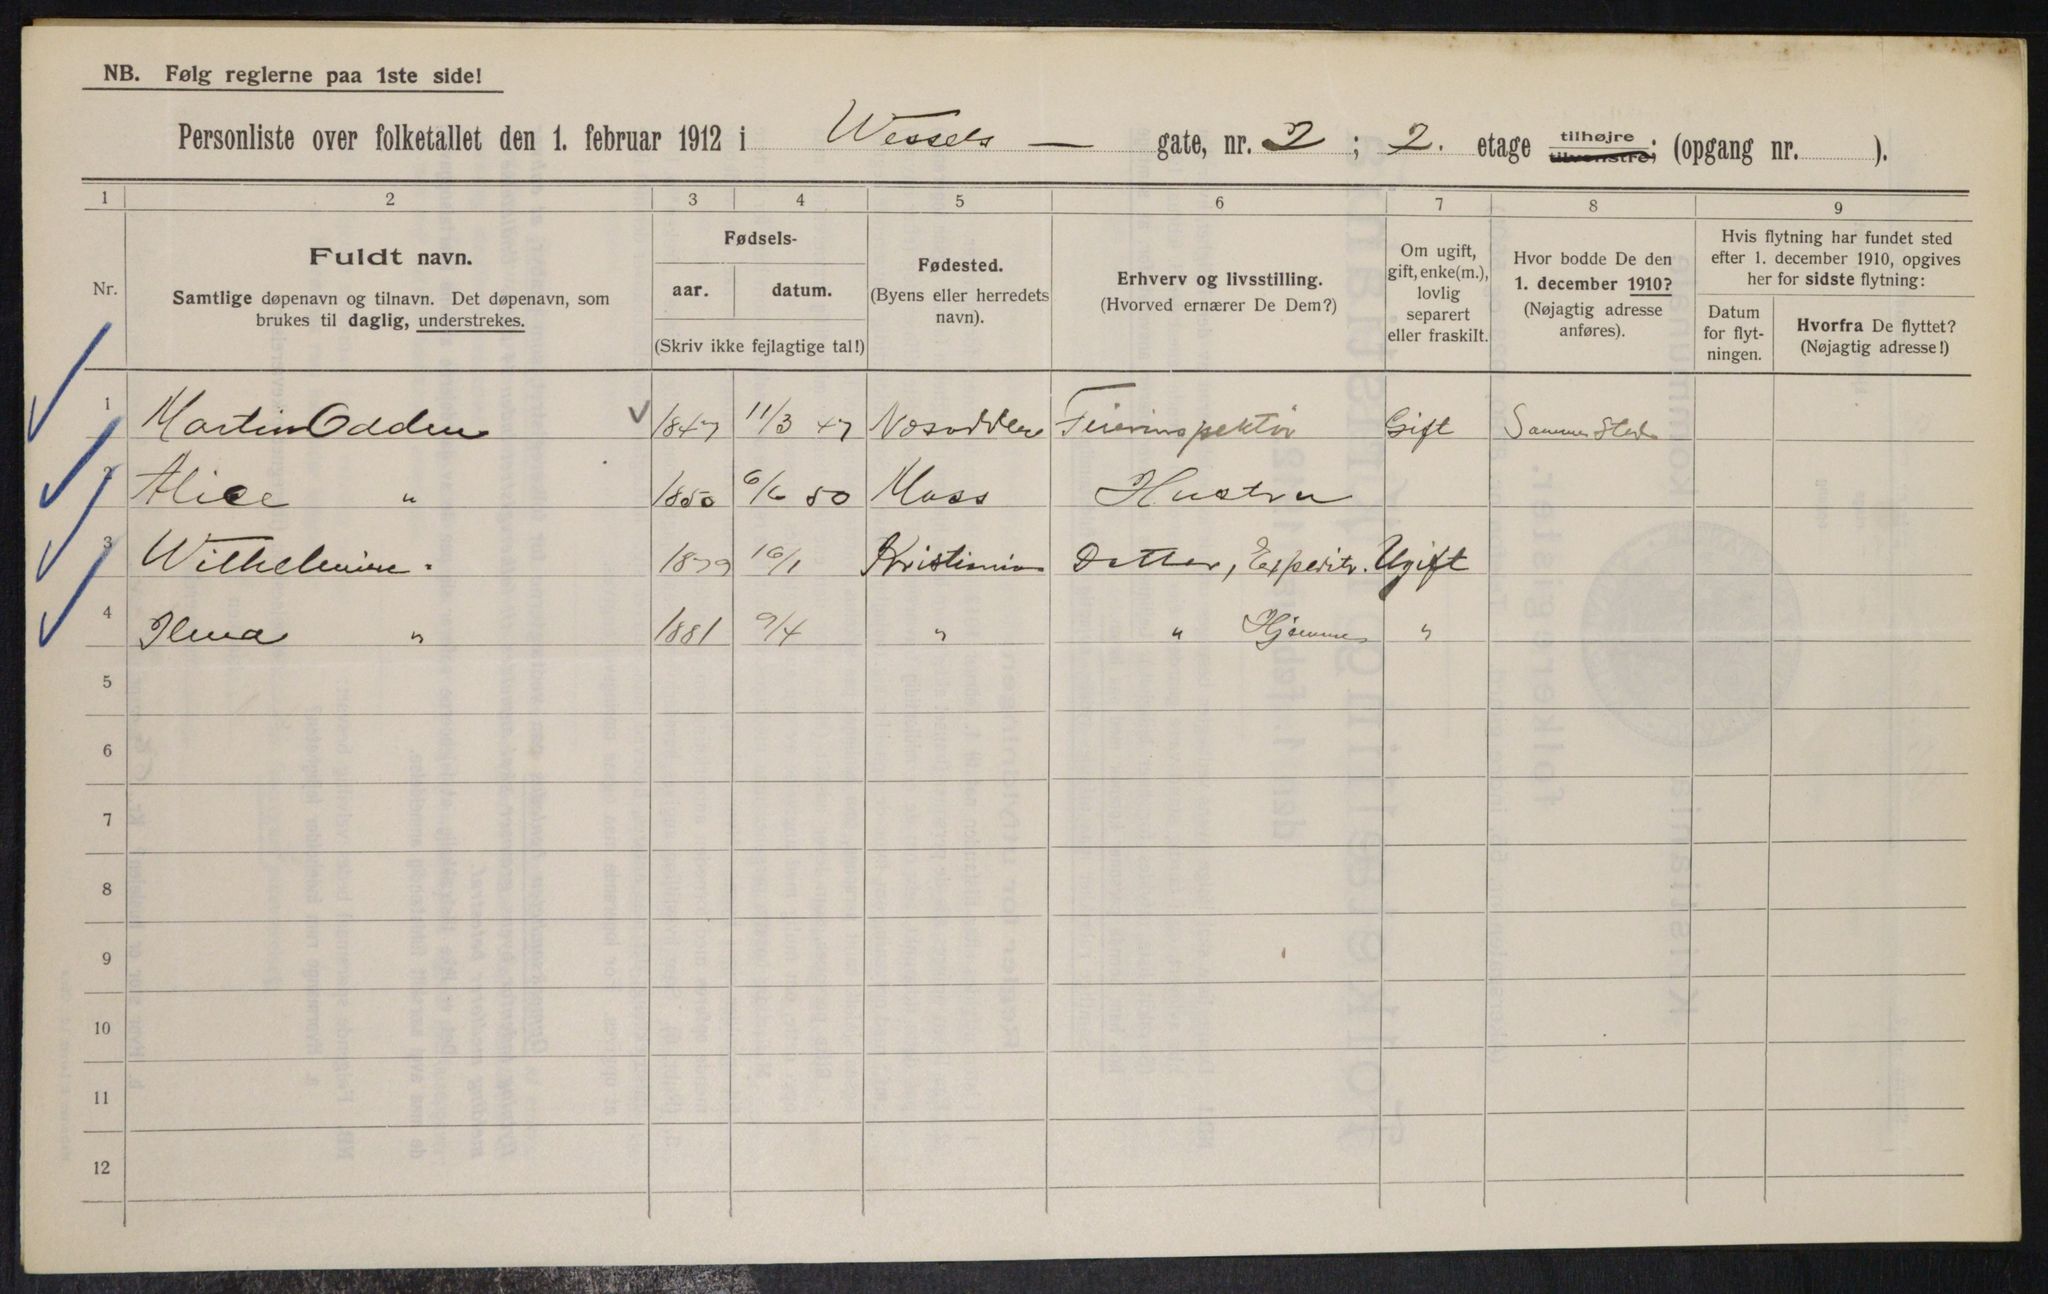 NB. Følg reglerne paa 1ste side!
Personliste over folketallet den 1. februar 1912 i Wessels — gate, nr. 2 ; 2. etage tilhøjre tilvenstre; (opgang nr. ).
1 2 3 4 5 6 7 8 9
Nr.
Fuldt navn.
Samtlige døpenavn og tilnavn. Det døpenavn, som
brukes til daglig, understrekes.
Fødsels-
aar. datum.
(Skriv ikke fejlagtige tal!)
Fødested.
(Byens eller herredets
navn).
Erhverv og livsstilling.
(Hvorved ernærer De Dem?)
Om ugift,
gift, enke(m.),
lovlig
separert
eller fraskilt.
Hvor bodde De den
1. december 1910?
(Nøjagtig adresse
anføres).
Hvis flytning har fundet sted
efter 1. december 1910, opgives
her for sidste flytning:
Datum
for flyt-
ningen.
Hvorfra De flyttet?
(Nøjagtig adresse!)
1 Martin Odden 1847 11/3 47 Nesodden Feierinspektör Gift Samme Sted
2 Alice " 1850 6/6 50 Moss Hustru
3 Wilhelmine " 1879 16/1 Kristiania Datter, Expeditr. Ugift
4 " 1881 9/4 " " Hjemme "
5
6
7
8
9
10
11
12